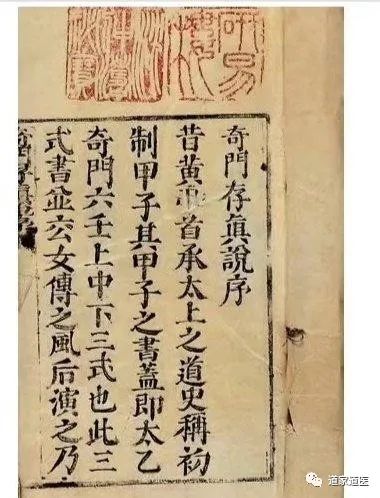 研易
奇門存眞說序
昔黃帝首承太上之道史稱初
制甲子其甲子之書蓋即太乙
奇門六壬上中下三式也此三
式書並六公女傳之風后演之乃
道家道医